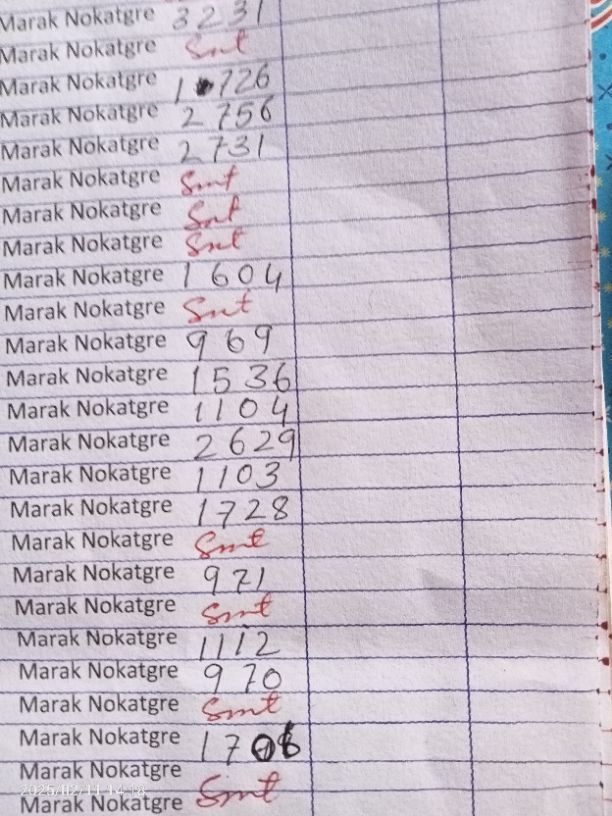 Marak Nokatgre 3231
Marak Nokatgre Smt
Marak Nokatgre 1 726
Marak Nokatgre 2756
Marak Nokatgre 2731
Marak Nokatgre Smt
Marak Nokatgre Smt
Marak Nokatgre Smt
Marak Nokatgre 1604
Marak Nokatgre Smt
Marak Nokatgre 969
Marak Nokatgre 1536
Marak Nokatgre 1104
Marak Nokatgre 2629
Marak Nokatgre 1103
Marak Nokatgre 1728
Marak Nokatgre Smt
Marak Nokatgre 971
Marak Nokatgre Smt
Marak Nokatgre 1112
Marak Nokatgre 970
Marak Nokatgre Smt
Marak Nokatgre 1706
Marak Nokatgre
2025/02/11 14:18
Marak Nokatgre Smt